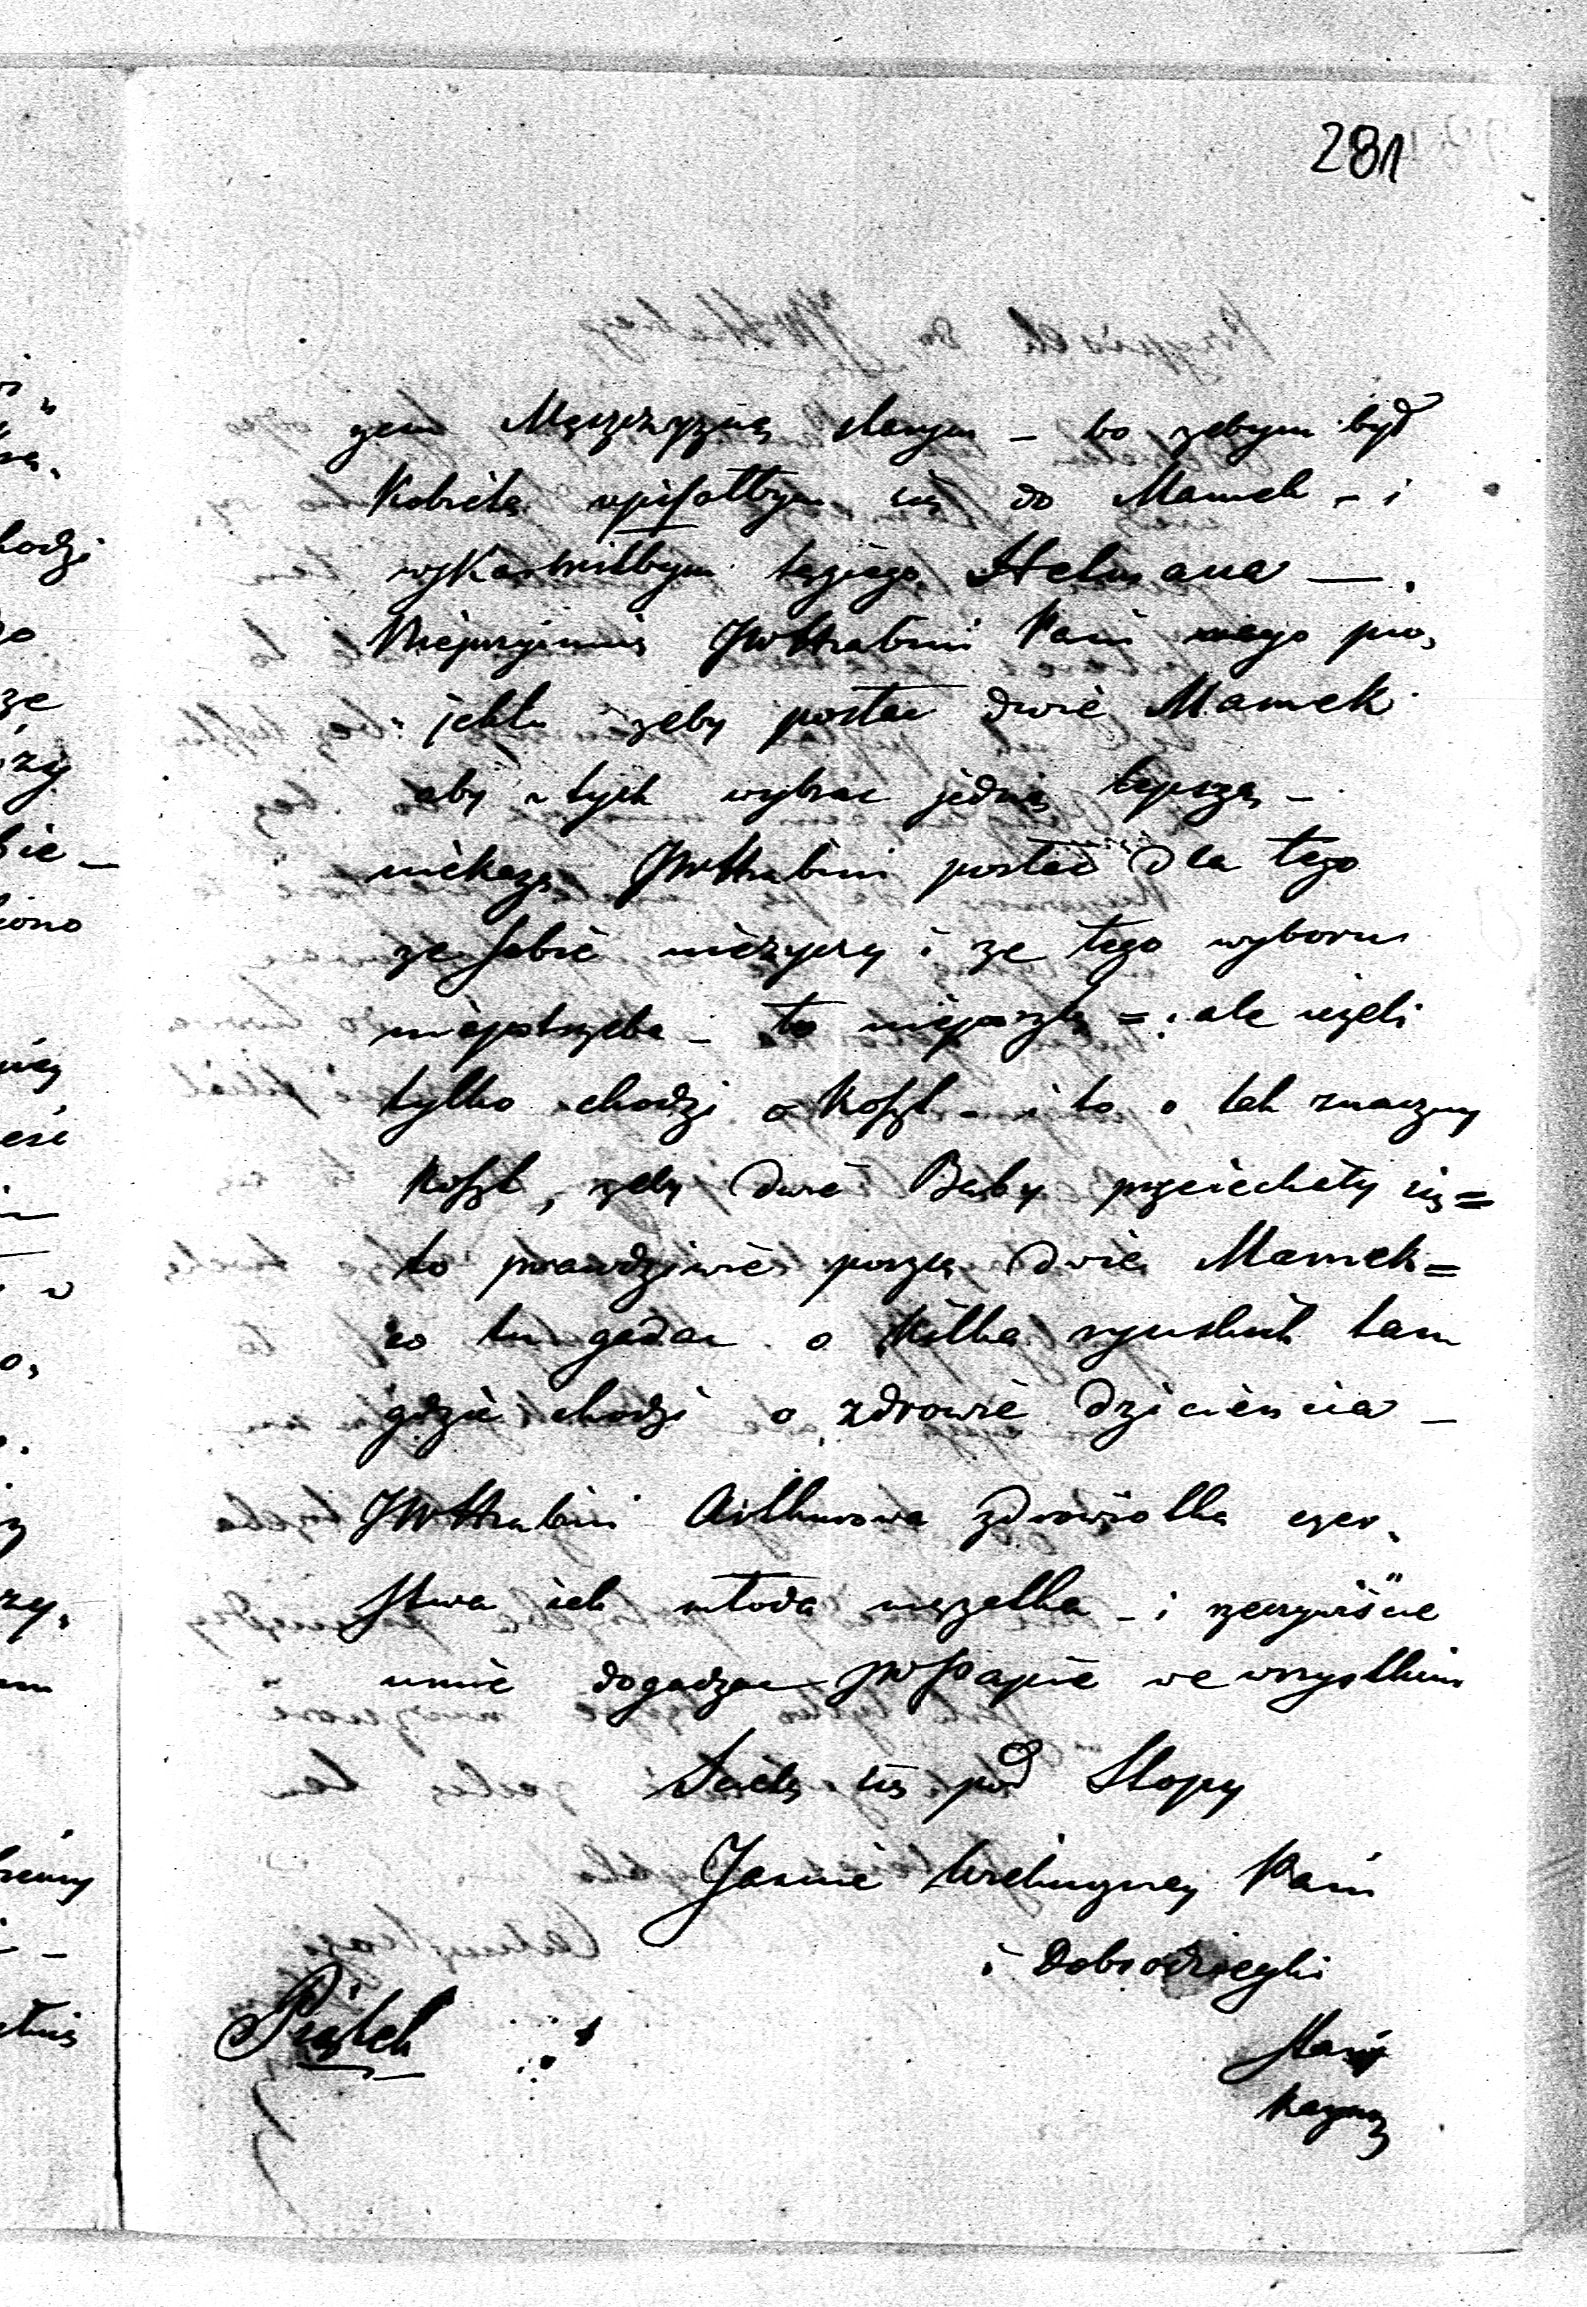 281
zem Męszczyzną starym - bo zebym był
Kobietą wpisałbym się do Mamek - i
wykarmiłbym tęgiego Hetmana —.
Nieprzyimie JWHrabini Pani mego pro,
"jektu zeby posłac dwie Mamek
aby z tych wybrac jedną lepszą -
niekaze JWHrabini posłac dla tego
ze sobie nieżyczy i ze tego wyboru
niepotrzeba - to nieposzlę = ale iezeli
tylko chodzi o koszt - i to o tak znaczny
koszt, zeby dwie Baby przeiechały się =
to prawdziwie poszlę dwie Mamek =
co tu gadac o kilka ryńskich tam
gdzie chodzi o zdrowie dziecięcia -
JWHrabini Arthurowa zdrowiotka czer,
stwa iak młoda męzatka - i rzeczywiście
umie dogadzac JWPapie we wszystkim
Ściele się pod Stopy
Jasnie Wielmozney Pani
i Dobrodzieyki
Piątek
stary